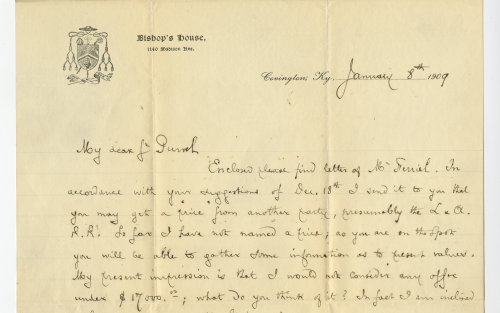 Bishop's House,
1140 Madison Ave.
Covington, Ky. January 8th 1909
My dear Fr
Enclosed please find letter of Mr. In
accordance with your suggestions of Dec. 18th I send it to you that
you may get a price from another party, presumably the L & A.
R.R. So far I have not named a price; as you are on the spot
you will be able to gather some information as to present values.
My present impression is that I would not consider any offer
under $17000.00; what do you think of it? In fact I am inclined